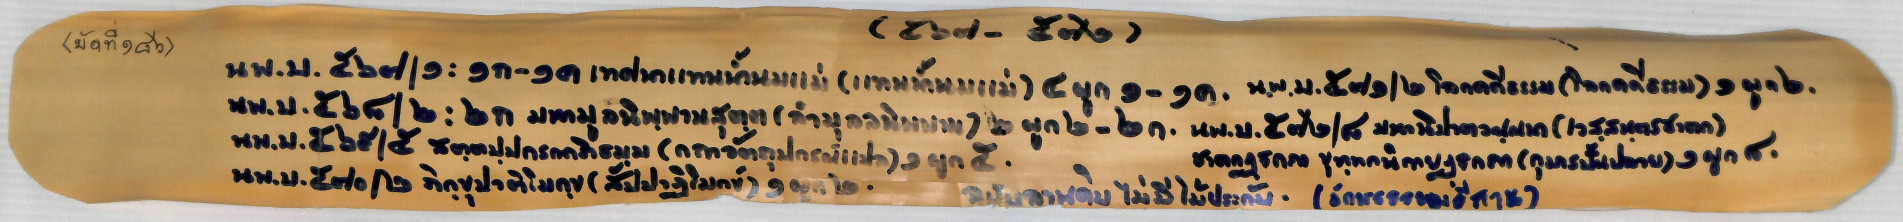 (มัดที่ ๑๘๖)
(๕๖๗ - ๕๗๒)
นพ.บ. ๕๖๗/๑ : ๑ก-๑ค เทศนาแทนน้ำนมแม่ (แทนน้ำนมแม่) ๔ ผูก ๑-๑ค. นพ.บ. ๕๗๑/๒ โลกคดีธรรม (โลกคดีธรรม) ๑ ผูก ๒.
นพ.บ. ๕๖๘/๒ : ๒ก มหามูลนิพฺพานสุตฺต (คำมูลนิพพาน) ๒ ผูก ๒-๒ก. นพ.บ. ๕๗๒/๘ มหานิปาตวณฺณนา (เวสฺสนฺตรชาดก)
นพ.บ. ๕๖๙/๕ สตฺตปฺปกรณาภิธมฺม ๑ ผูก ๕. ชาตกฏฺฐกถา ขุทฺทกนิกายฏฺฐกถา (กุมารบั้นปลาย) ๑ ผูก ๘.
นพ.บ. ๕๗๐/๒ ภิกฺขุปาติโมกฺข (สัปปาฏิโมกข์) ๑ ผูก ๒. ฉบับลานดิบ ไม่มีไม้ประกับ. (อักษรธรรมอีสาน)